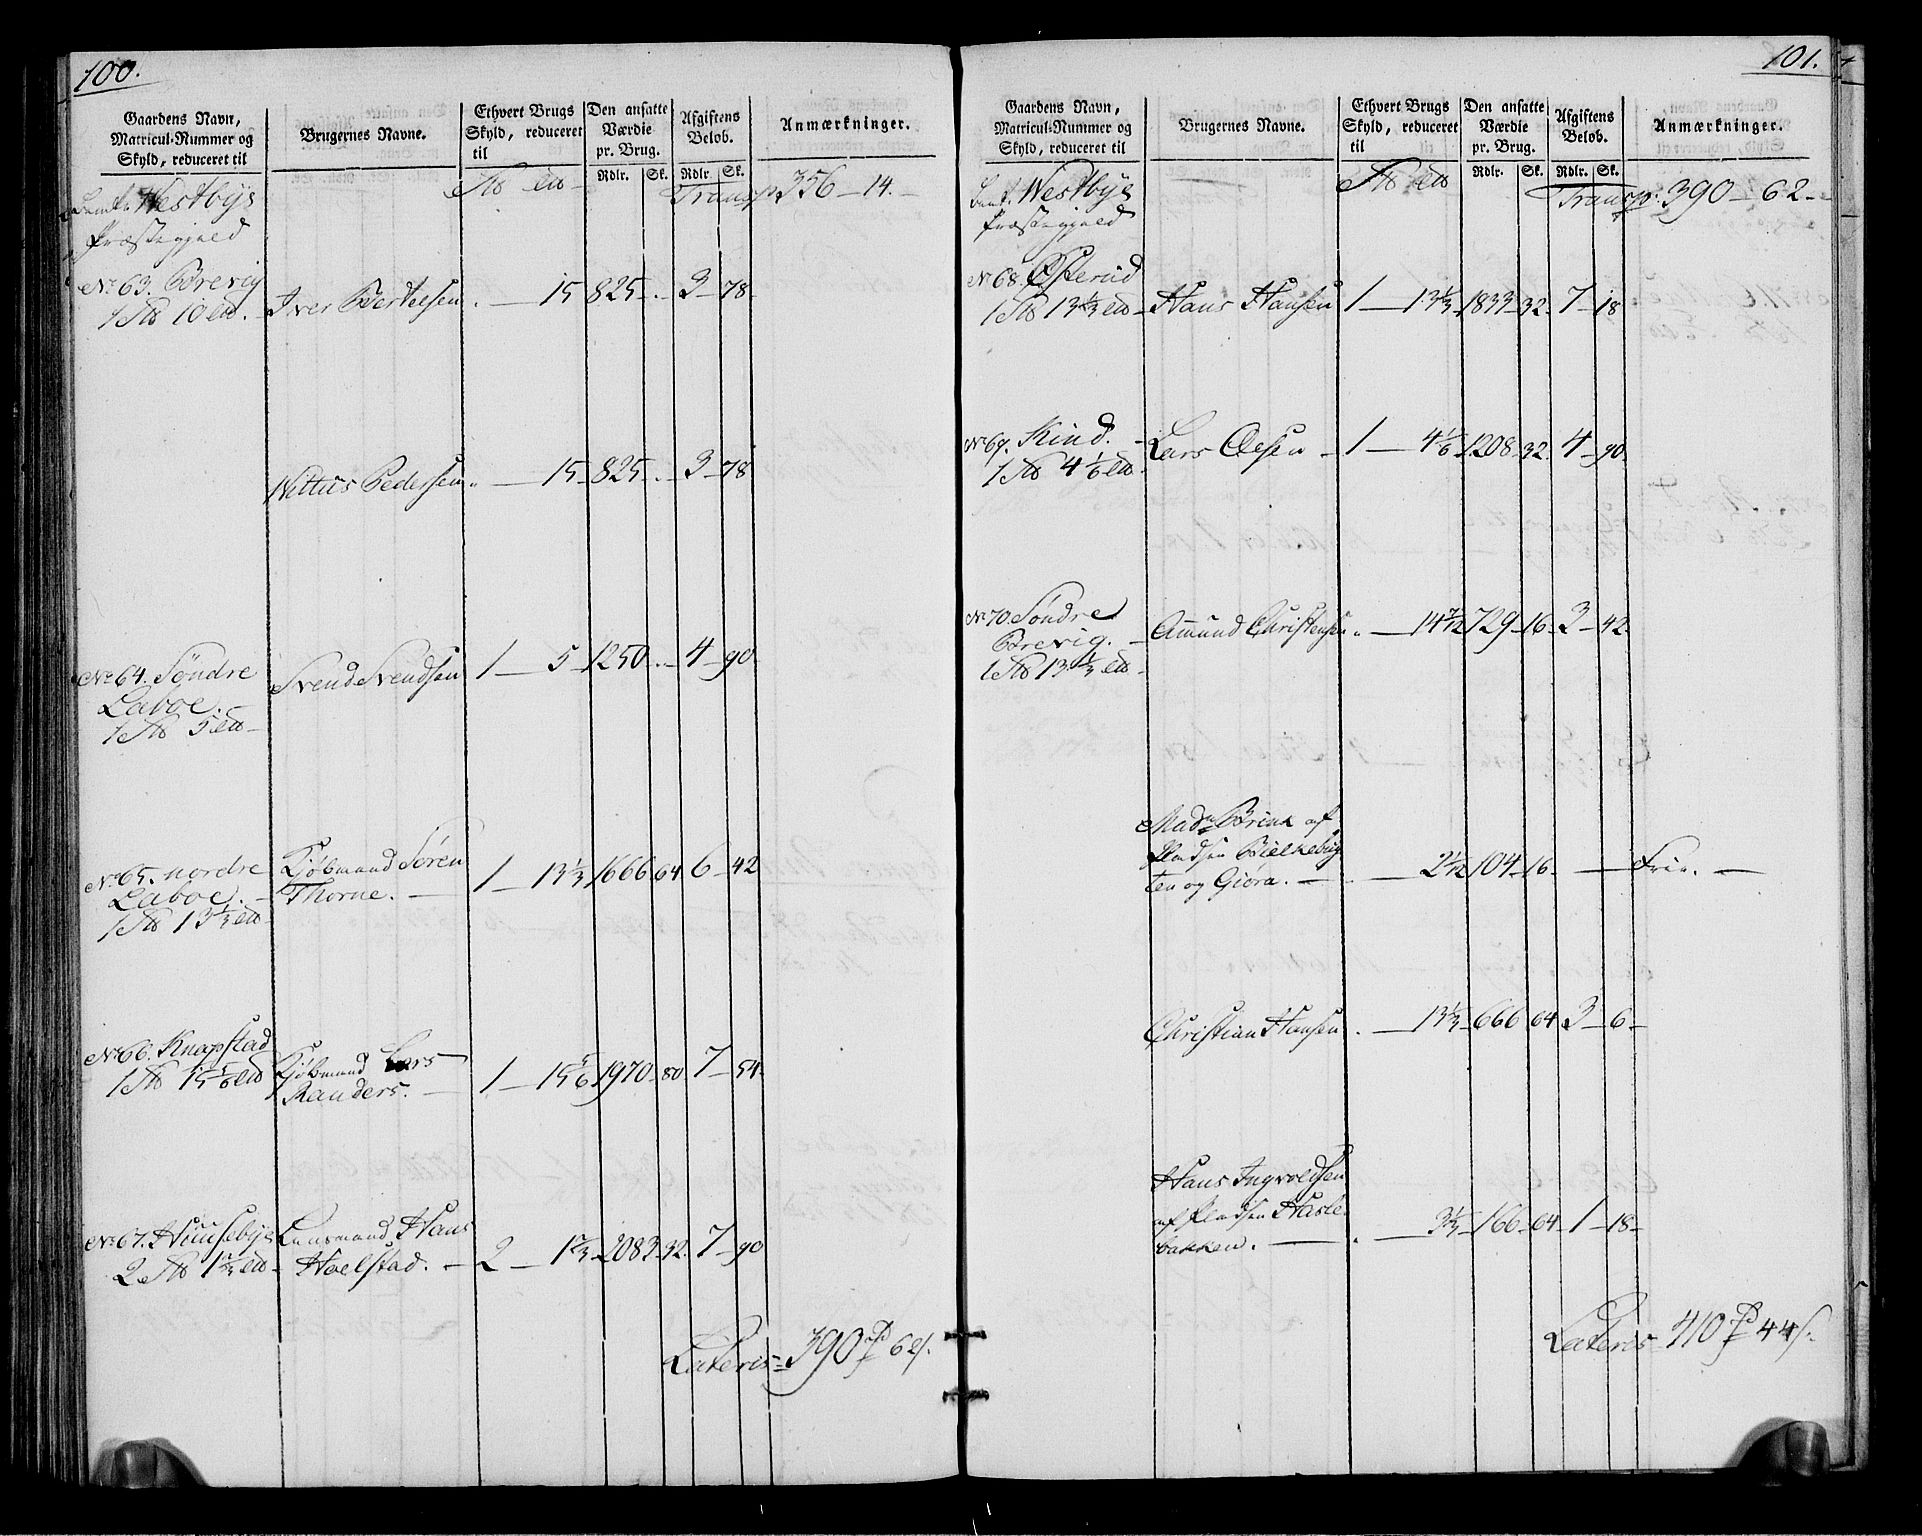 100.
Gaardens Navn,
Matricul-Nummer og
Skyld, reduceret til
Brugernes Navne.
Ethvert Brugs
Skyld, reduceret
til
Den ansatte
Værdie
pr. Brug.
Rdlr. Sk.
Afgiftens
Beløb.
Rdlr. Sk.
Anmærkninger.
Westbye
Præstegjeld
Transp. 356 - 14.
No 63. Brevig
1 10
Iver Bertelsen - 15 825 - 3 - 78
Wittus Pedersen - 15 825 - 3 - 78
No 64. Søndre
Laboe.
1 5
Svend Svendsen 1 - 5 1250 - 4 - 90
No 65. nordre
Laboe.
1 13 1/3
Kjøbmand Søren
Thorne. 1 - 13 1/3 1666 64 6 - 42
No 66. Knapstad
1 15 5/6
Kjøbmand Lars
Randers. 1 - 15 5/6 1970 - 80 7 - 54
No 67. Huusebye
2 1 2/3
Lensmand Hans
Hoelstad. 2 - 1 2/3 2083 - 32 7 - 90
Lateris 390 62
101.
Gaardens Navn,
Matricul-Nummer og
Skyld, reduceret til
Brugernes Navne.
Ethvert Brugs
Skyld, reduceret
til
Den ansatte
Værdie
pr. Brug.
Rdlr. Sk.
Afgiftens
Beløb.
Rdlr. Sk.
Anmærkninger.
Westbye
Præstegjeld
Transp. 390 - 62
No 68. Østerud
1 13 1/3
Hans Hansen 1 - 13 1/3 1833 - 32 7 - 18
No 69. Kind.
1 4 1/6
Lars Olesen 1 - 4 1/6 1208 - 32 4 - 90
No 70. Søndre
Brevig.
1 13 1/3
Amund Christensen - 14 7/12 729 - 16 3 - 42
Mad Brink af
Pladsen Bielkebug
ten og Giøra. - 2 1/12 104 - 16 - Frie.
Christian Hansen - 13 1/3 666 64 3 - 6
Hans Ingvoldsen
af Pladsen Hasle
bakken. - 3 1/3 166 - 64 1 - 18
Lateris 410 44